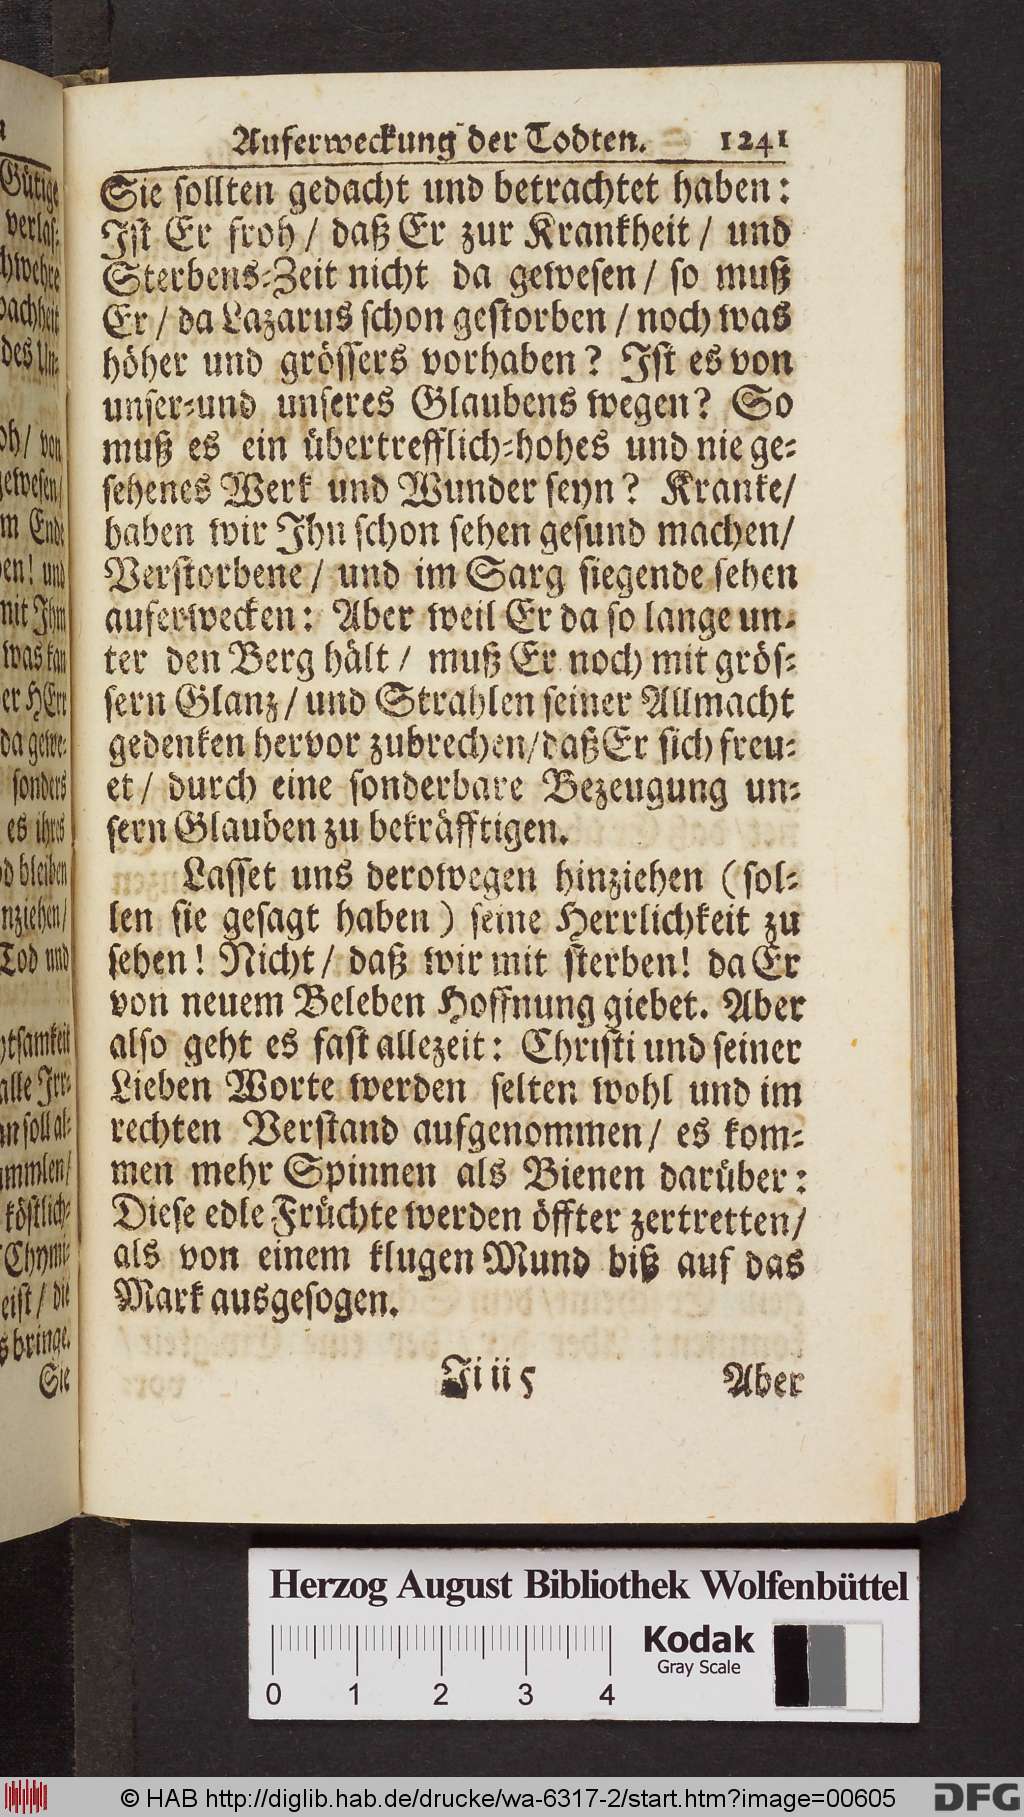 Auferweckung der Todten. 1241
Sie sollten gedacht und betrachtet haben:
Ist Er froh / daß Er zur Krankheit / und
Sterbens-Zeit nicht da gewesen / so muß
Er / da Lazarus schon gestorben / noch was
höher und grössers vorhaben? Ist es von
unser-und unseres Glaubens wegen? So
muß es ein übertrefflich-hohes und nie ge-
sehenes Werk und Wunder seyn? Kranke/
haben wir Ihn schon sehen gesund machen/
Verstorbene / und im Sarg siegende sehen
auferwecken: Aber weil Er da so lange un-
ter den Berg hält / muß Er noch mit grös-
sern Glanz / und Strahlen seiner Allmacht
gedenken hervor zubrechen/daß Er sich freu-
et / durch eine sonderbare Bezeugung un-
sern Glauben zu bekräfftigen.
Lasset uns derowegen hinziehen (sol-
len sie gesagt haben) seine Herrlichkeit zu
sehen! Nicht / daß wir mit sterben! da Er
von neuem Beleben Hoffnung giebet. Aber
also geht es fast allezeit: Christi und seiner
Lieben Worte werden selten wohl und im
rechten Verstand aufgenommen / es kom-
men mehr Spinnen als Bienen darüber:
Diese edle Früchte werden öffter zertretten/
als von einem klugen Mund biß auf das
Mark ausgesogen.
Ji ii 5 Aber
Gütige
verlas-
des Un-
gewesen/
en! und
mit Ihm
was kan
er HErr
da gewe-
sonders
es ihres
bleiben
Tod und
alle Irr-
soll al-
köstlich-
Chymi-
die
bringe.
Sie
Herzog August Bibliothek Wolfenbüttel
Kodak
Gray Scale
0 1 2 3 4
© HAB http://diglib.hab.de/drucke/wa-6317-2/start.htm?image=00605
DFG